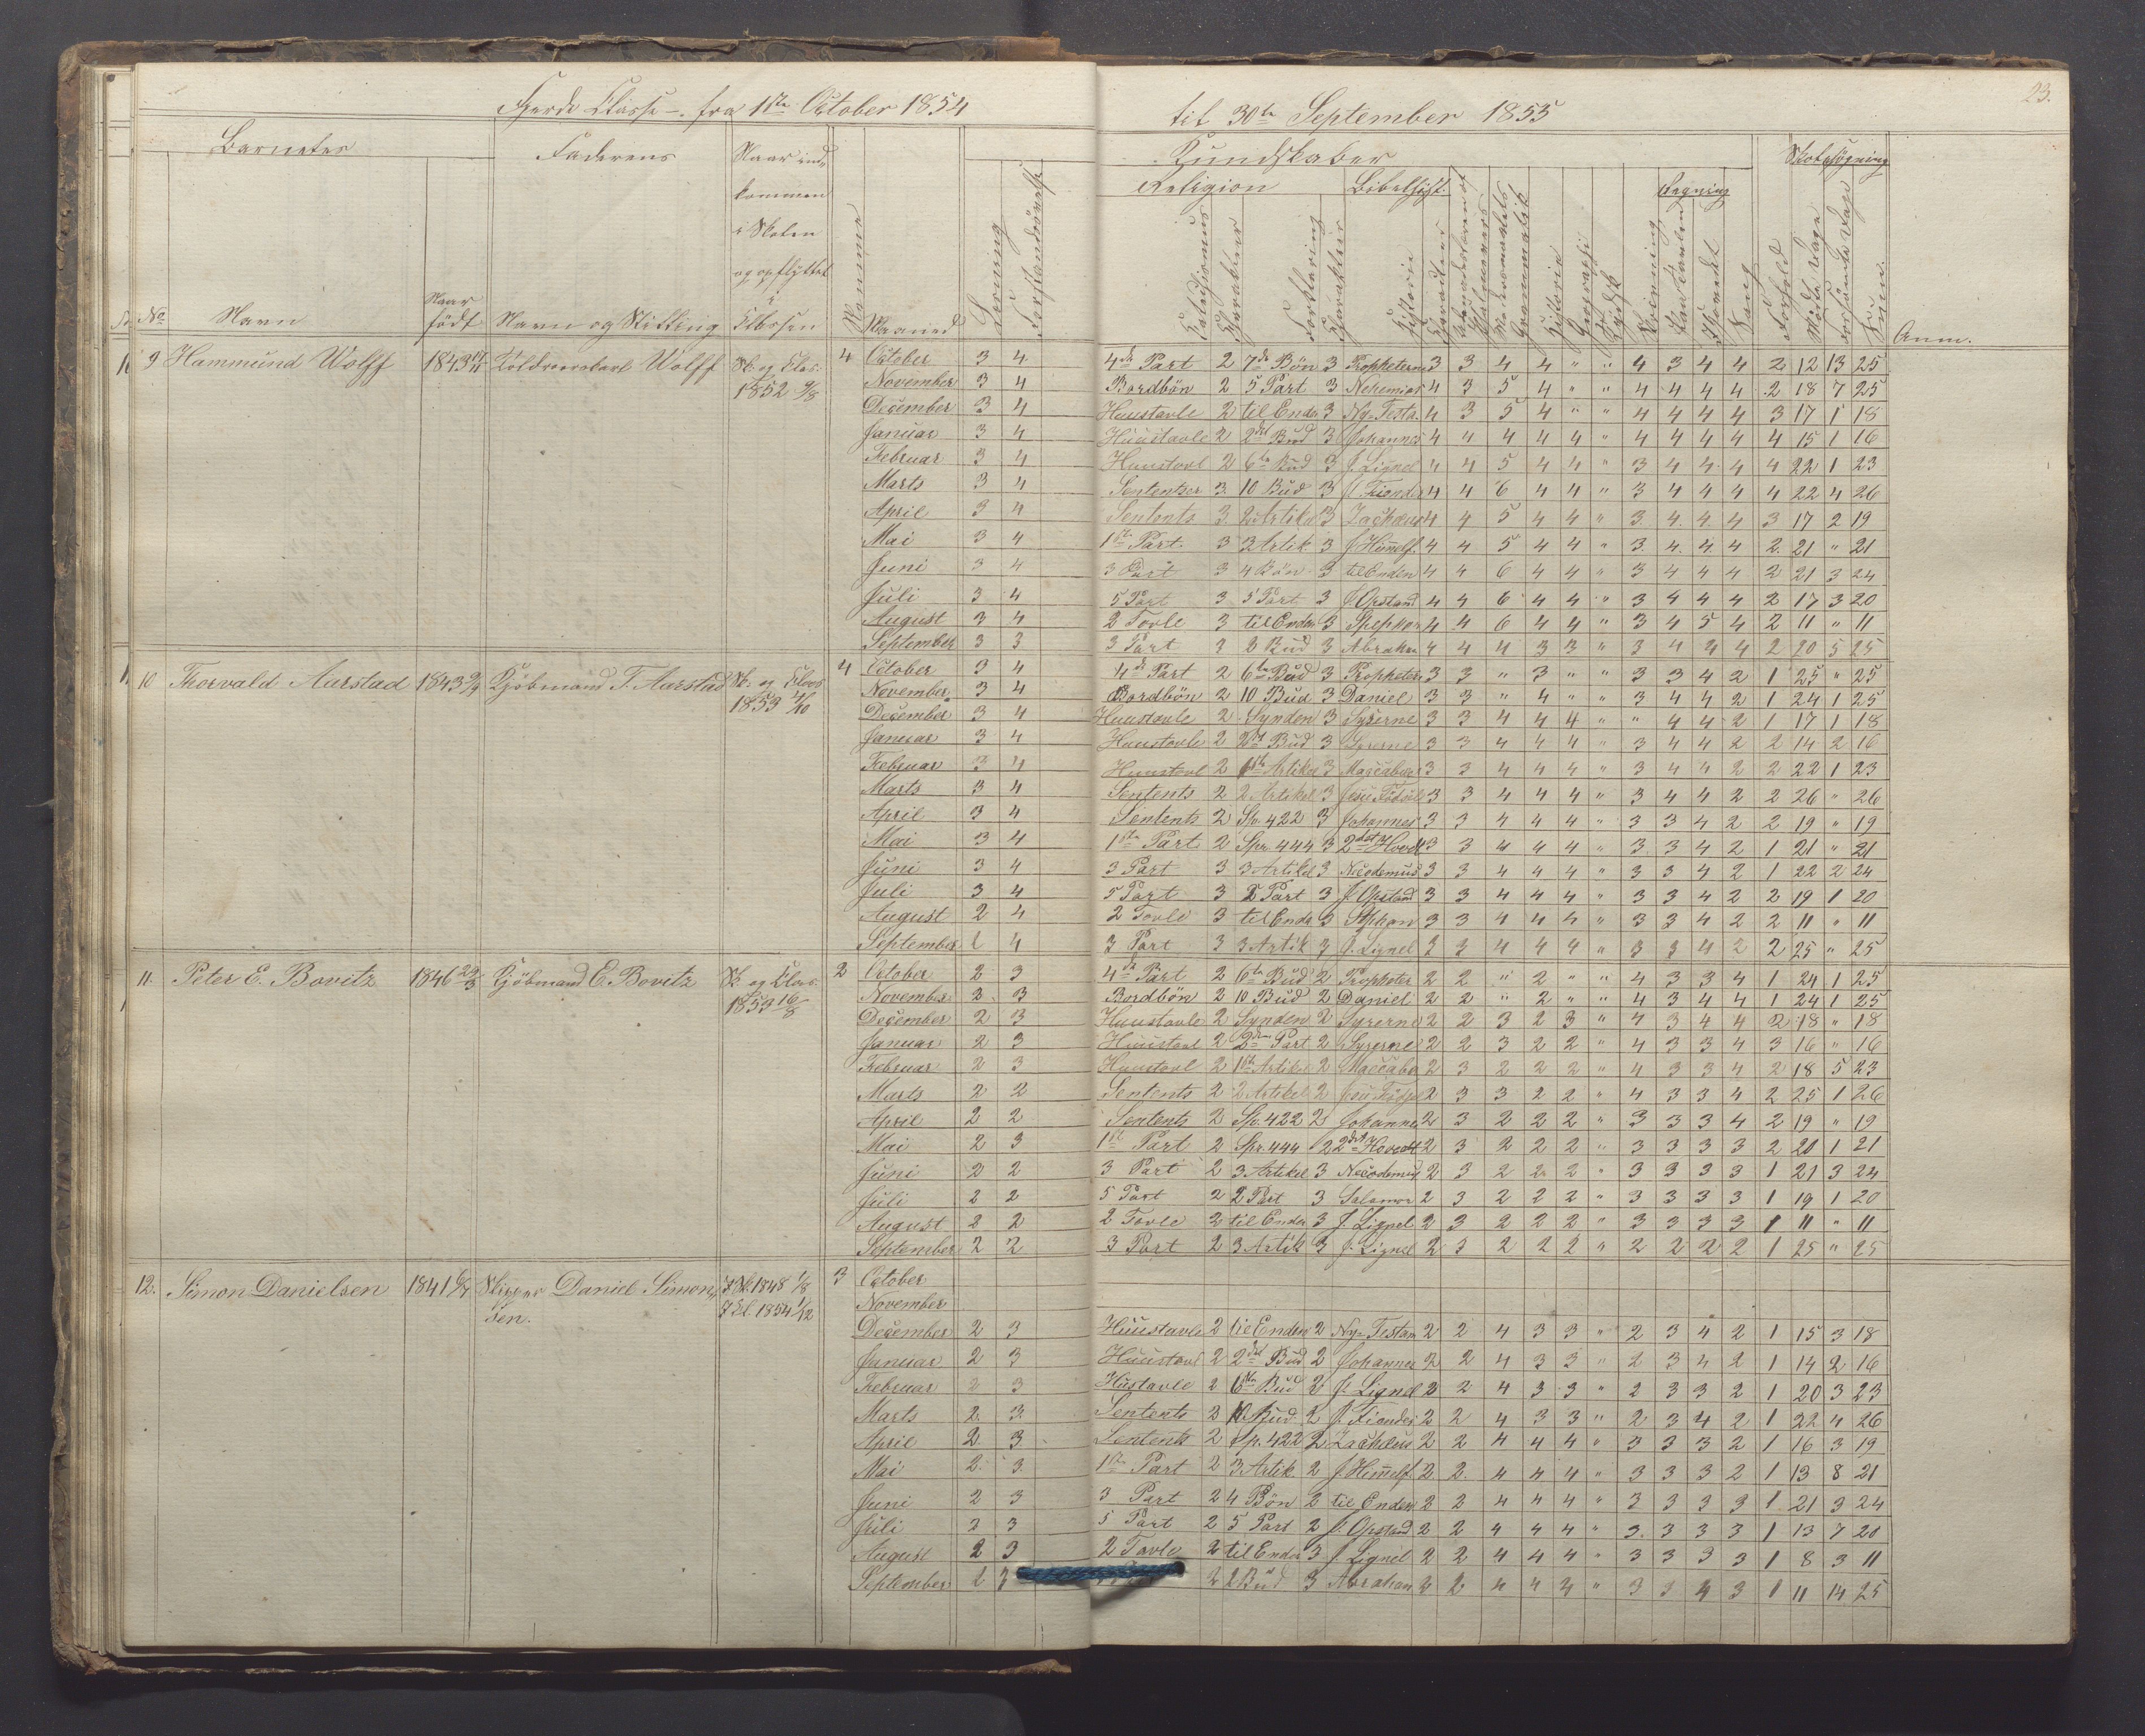 Fjerde Classe – fra 1ste October 1854 til 30te September 1855
23.
Barnets Faderens Naar ind- Kundskaber Skolesøgning
kommen Religion Bibelhist. Regning
i Skolen
og opflyttet
i
No Navn Naar født Navn og Stilling Classen Maaned Læsning Forstandsøvelse Catechismus Charakter Forklaring Charakter Historie Grammatik Historie Geografi Tydsk Skrivning Paa Tavlen Hovedet Sang Forhold Mødte Dage Forsømte Dage Sum. Anm.
9 Hammund Wolff 1843 Wolff Sk. og Clas. 4 October 3 4 4de Part 2 7de Bøn 3 Propheterne 3 3 4 4 " " 4 3 4 4 2 12 13 25
1852 9/8 November 3 4 Bordbön 2 5 Part 3 Nehemias 4 3 5 4 " " 4 4 4 4 2 18 7 25
December 3 4 Huustavle 2 til Enden 3 Ny-Testa. 4 3 5 4 " " 4 4 4 4 3 17 1 18
Januar 3 4 Huustavle 2 2det Bud 3 Johannes 4 4 4 4 4 " 4 4 4 4 4 15 1 16
Februar 3 4 Huustavl 2 6te Bud 3 J. Lignel 4 4 5 4 4 " 3 4 4 4 4 22 1 23
Marts 3 4 Sententser 3 10 Bud 3 J. Fiender 4 4 6 4 4 " 3 4 4 4 4 22 4 26
April 3 4 Sentents 3 2 Artikel 3 Zachæus 4 4 5 4 4 " 3 4 4 4 3 17 2 19
Mai 3 4 1ste Part. 3 3 Artik 3 J. Himelf. 4 4 5 4 4 " 3 4 4 4 2 21 " 21
Juni 3 4 3 Part 3 4 Bön 3 til Enden 4 4 6 4 4 " 3 4 4 4 2 21 3 24
Juli 3 4 5 Part 3 5 Part 3 J. Opstand 4 4 6 4 4 " 3 4 4 4 2 17 3 20
August 3 4 2 Tavle 3 til Enden 3 Stephan 4 4 6 4 4 " 3 4 5 4 2 11 " 11
September 3 3 3 Part 3 2 Bud 3 Abraham 4 4 4 3 3 " 3 4 3 4 2 20 5 25
10 Thorvald Aarstad 1843 Kjöbmand T. Aarstad Sk. og Class 4 October 3 4 4de Part 2 6te Bud 3 Propheter 3 3 " 3 " " 3 3 4 2 1 25 " 25
1853 4/10 November 3 4 Bordbön 2 10 Bud 3 Daniel 3 3 " 4 " " 3 4 4 2 1 24 1 25
December 3 4 Huustavle 2 Synden 3 Syrerne 3 3 4 4 4 " " 4 4 2 1 17 1 18
Januar 3 4 Huustavle 2 2det Bud 3 Syrerne 3 3 4 4 4 " 3 4 4 2 2 14 2 16
Februar 3 4 Huustavl 2 1ste Artikel 3 Maccabæer 3 3 4 4 4 " 3 4 4 2 2 22 1 23
Marts 3 4 Sentents 2 2 Artikel 3 Jesu Födsel 3 3 4 4 4 " 3 4 4 2 2 26 " 26
April 3 4 Sentents 2 Sp. 422 3 Johannes 3 3 4 4 4 " 3 3 4 2 2 19 " 19
Mai 3 4 1ste Part 2 Spr. 444 3 2det Hoved 3 3 4 4 4 " 3 3 4 2 1 21 " 21
Juni 3 4 3 Part 3 3 Artikel 3 Nicodemus 3 3 4 4 4 " 3 3 4 2 1 22 2 24
Juli 3 4 5 Part 3 2 Part 3 J. Opstand 3 3 4 4 4 " 3 3 4 2 2 19 1 20
August 2 4 2 Tavle 3 til Ende 3 Stephan 3 3 4 4 4 " 3 3 4 2 2 11 " 11
September 2 4 3 Part 3 3 Artik 3 J. Lignel 3 3 4 4 4 " 3 3 4 2 2 25 " 25
11. Peter E. Bovitz 1846 Kjöbmand E. Bovitz Sk. og Class 2 October 2 3 4de Part 2 6te Bud 2 Propheter 2 2 " 2 " " 4 3 3 4 1 24 1 25
1853 16/8 November 2 3 Bordbön 2 10 Bud 2 Daniel 2 2 " 2 " " 4 3 4 4 1 24 1 25
December 2 3 Huustavle 2 Synden 2 Syrerne 2 2 3 2 3 " 4 3 4 4 2 18 " 18
Januar 2 3 Huustavl 2 2den Part 2 Syrerne 2 2 3 2 2 " 4 3 3 4 3 16 " 16
Februar 2 3 Huustavl 2 1ste Artikel 2 Maccabæ 2 3 2 2 2 " 4 3 3 4 2 18 5 23
Marts 2 2 Sentents 2 2 Artikel 2 Jesu Födsel 2 3 3 2 2 " 4 3 3 4 2 25 1 26
April 2 2 Sentents 2 Sp. 422 2 Johannes 2 3 2 2 2 " 3 3 3 4 2 19 " 19
Mai 2 3 1st Part 2 Spr. 444 2 2det Hoved 2 3 2 2 2 " 3 3 3 3 2 20 1 21
Juni 2 2 3 Part 2 3 Artikel 3 Nicodemus 2 3 2 2 2 " 3 3 3 3 1 21 3 24
Juli 2 2 5 Part 2 2 Part 3 2 3 2 2 2 " 3 3 3 3 1 19 1 20
August 2 2 2 Tavle 2 til Enden 3 J. Lignel 2 3 2 2 2 " 3 3 3 3 1 11 " 11
September 2 2 3 Part 2 3 Artik 3 J. Lignel 2 3 2 2 2 " 2 2 2 2 1 25 " 25
12. Simon Danielsen 1841 Skipper Daniel Simon- i Sk. 1848 1/8 3 October
sen. i Cl. 1854 1/12 November
December 2 3 Huustavle 2 til Enden 2 Ny-Testam 2 2 4 3 3 " 2 3 4 2 1 15 3 18
Januar 2 3 Huustavl 2 2det Bud 2 Johannes 2 2 4 3 3 " 2 3 4 2 1 14 2 16
Februar 2 3 Hustavle 2 6te Bud 2 J. Lignel 2 2 4 3 3 " 2 3 3 2 1 20 3 23
Marts 2 3 Sentents 2 10 Bud 2 J. Fiender 2 2 4 3 3 " 2 3 4 2 1 22 4 26
April 2 3 Sentents 2 Sp. 422 2 Zachæus 2 2 4 4 4 " 3 3 3 2 1 16 3 19
Mai 2 3 1ste Part 2 3 Artik 2 J. Himelf. 2 2 4 4 4 " 3 3 3 2 1 13 8 21
Juni 2 3 3 Part 2 4 Bön 2 til Enden 2 2 4 4 4 " 3 3 3 3 1 21 3 24
Juli 2 3 5 Part 2 5 Part 2 J. Opstand 2 2 4 4 4 " 3 3 3 3 1 13 7 20
August 2 3 2 Tavle 2 til Ende 3 J. Lignel 2 2 4 4 4 " 3 3 3 3 1 8 3 11
September 2 2 2 Bud 3 Abraham 2 2 4 4 3 " 3 3 4 3 1 11 14 25